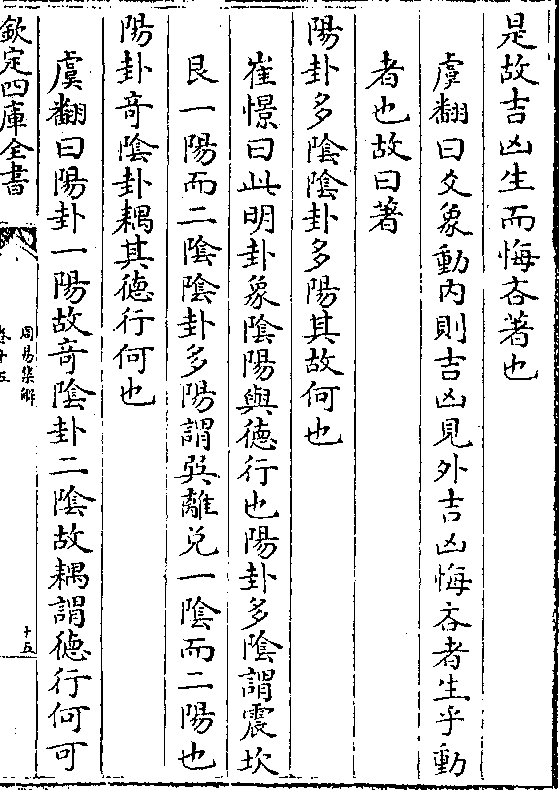 是故吉凶生而悔吝著也
虞翻曰爻象動内則吉凶見外吉凶悔吝者生乎動
者也故曰著
陽卦多陰陰卦多陽其故何也
崔憬曰此明卦象陰陽與徳行也陽卦多陰謂震坎
艮一陽而二陰陰卦多陽謂巽離兑一陰而二陽也
陽卦竒陰卦耦其徳行何也
虞翻曰陽卦一陽故竒陰卦二陰故耦謂徳行何可
欽定四庫全書
周易集解
卷十五
十五